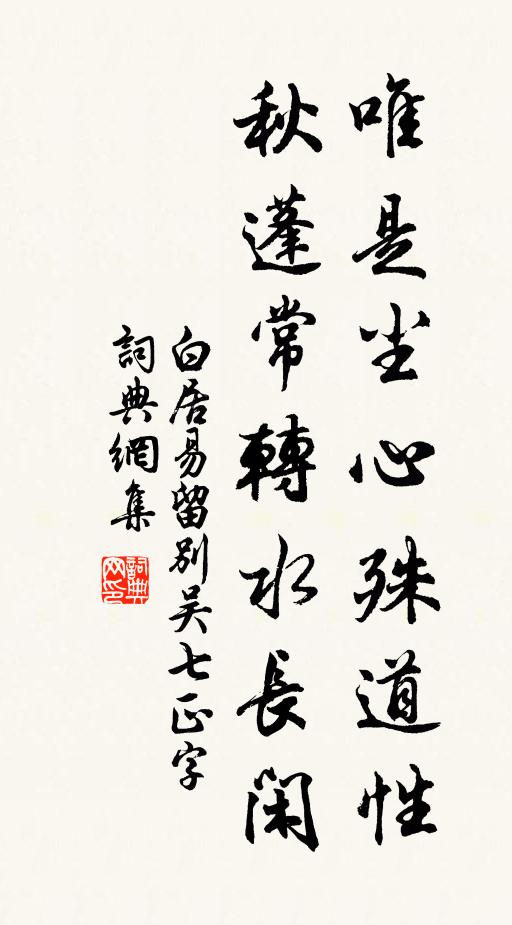 唯是尘心殊道性
秋蓬常轉水長閑
白居易留别吴七正字
詞典網集
詞典网印